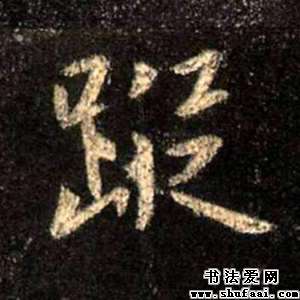 蹤
书法爱网
www.shufaai.com